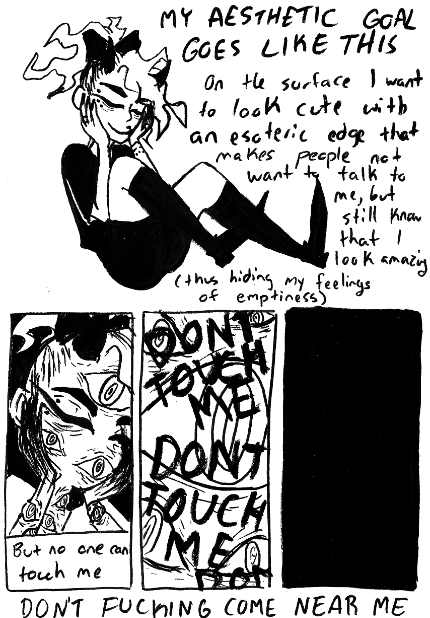 MY AESTHETIC GOAL
GOES LIKE THIS
On the surface I want
to look cute with
an esoteric edge that
makes people not
want to talk to
me, but
still know
that I
look amazing
(thus hiding my feelings
of emptiness)
But no one can
touch me
DONT
TOUCH
ME
DONT
TOUCH
ME
DON
DON'T FUCKING COME NEAR ME